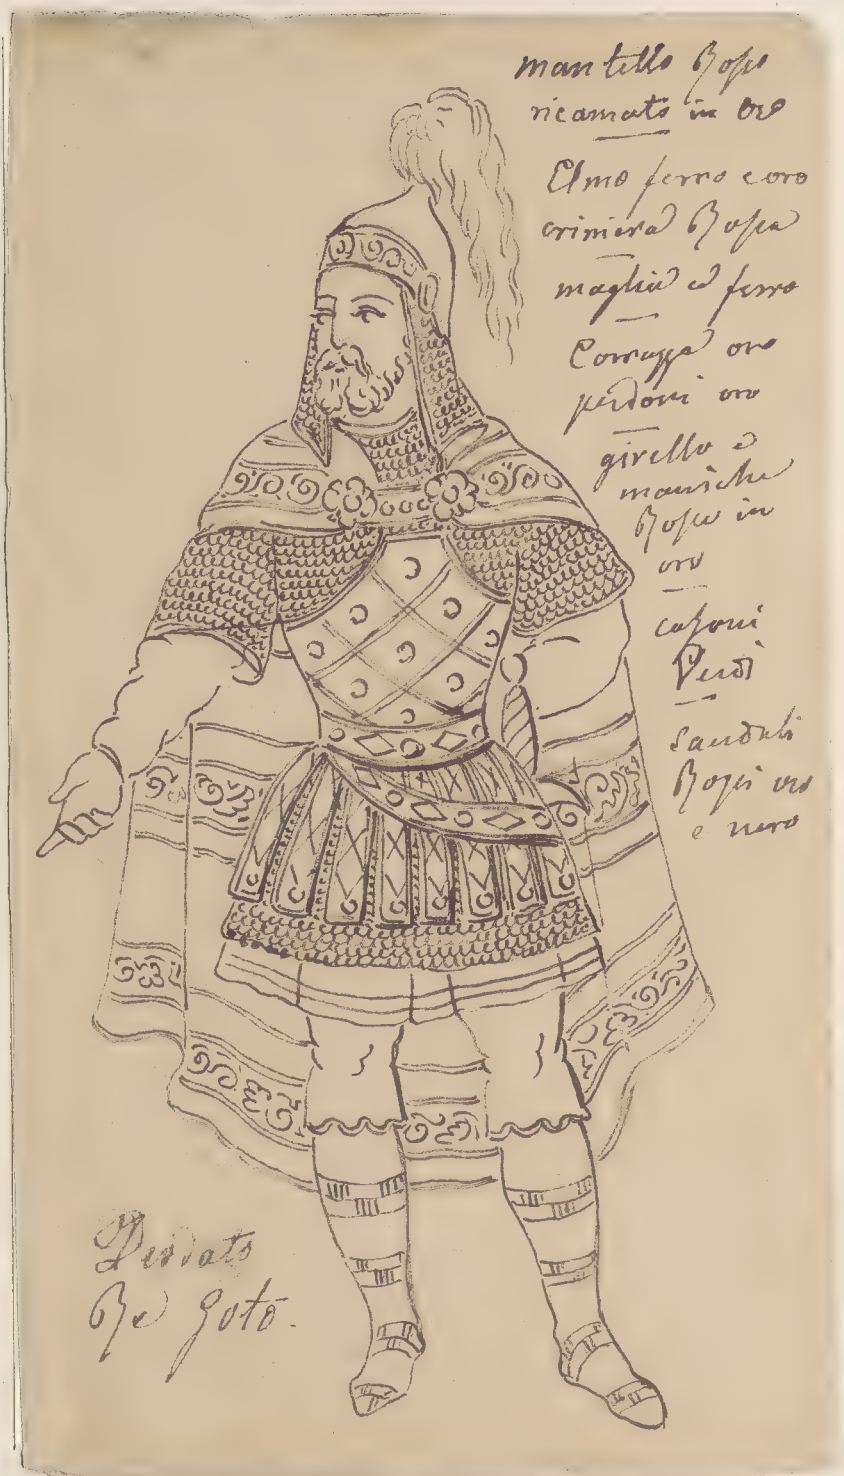 mantello Rosso
ricamato in oro
Elmo ferro e oro
criniera Rossa
maglia ferro
Corrazza oro
oro
girello e
maniche
Rosse in
oro
calzoni
Verdi
sandali
Rossi oro
e nero
Deodato
Re Goto.